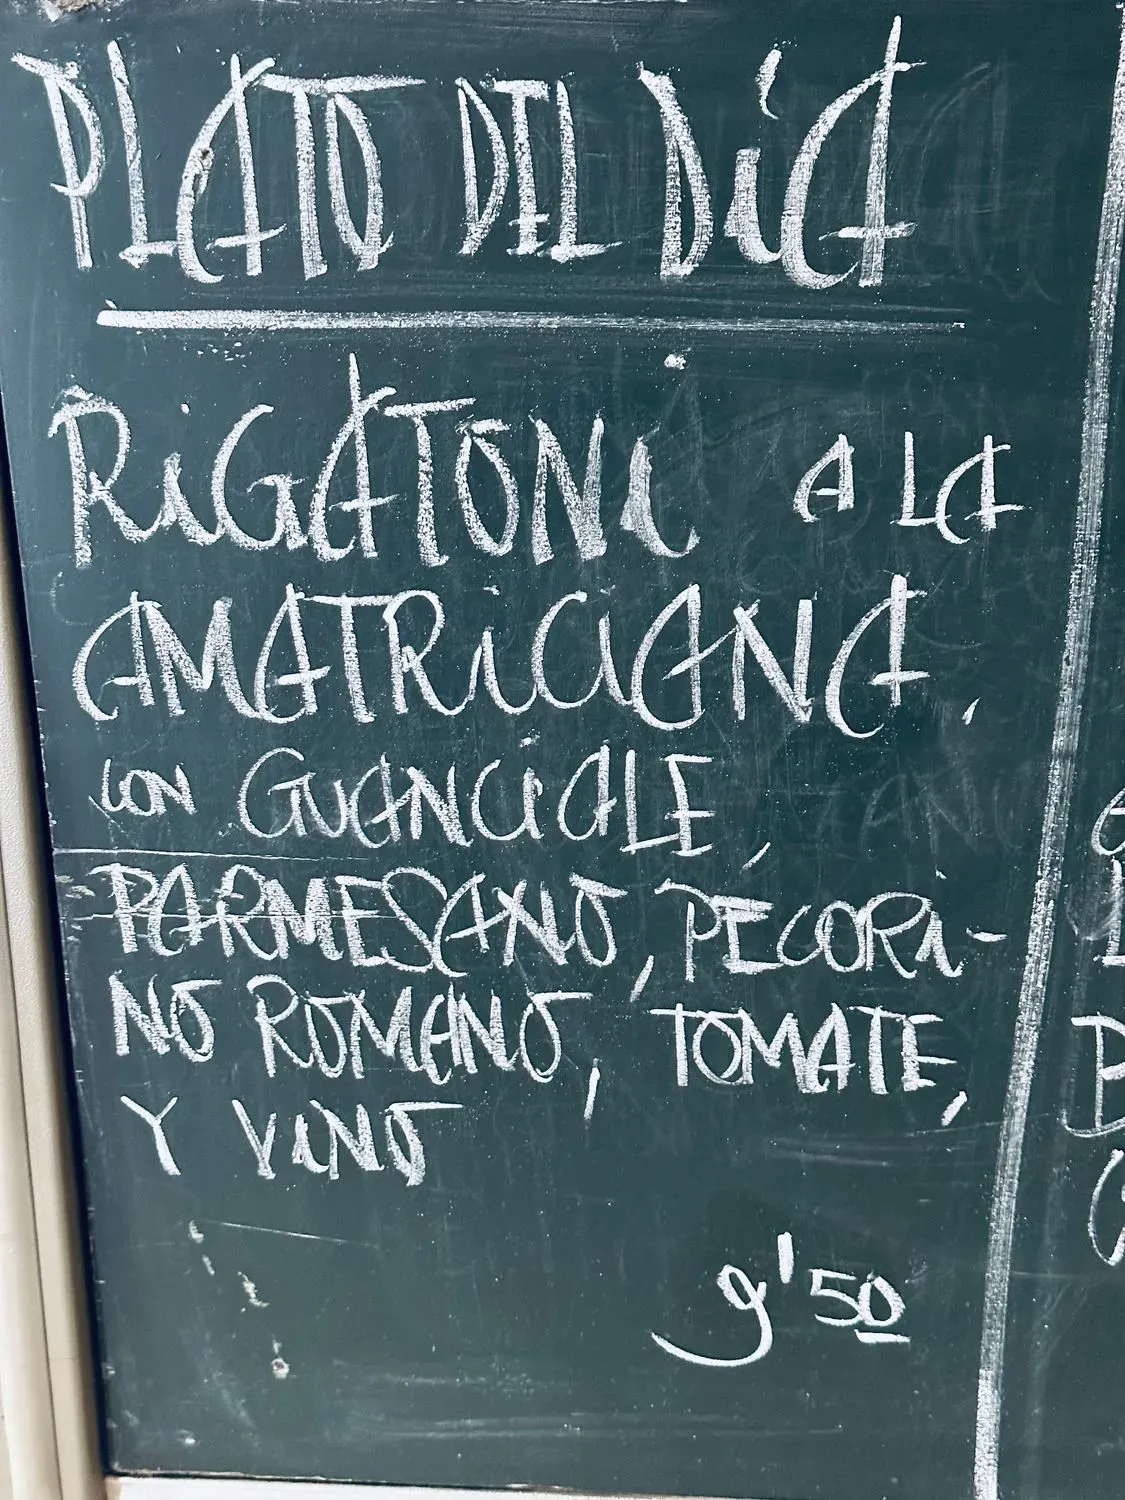 PLATO DEL DíA
RiGATONi A LA
AMATRiCiANA,
CON GUANCiALE,
PARMESANO, PECORi-
NO ROMANO, TOMATE,
Y ViNO
9'50